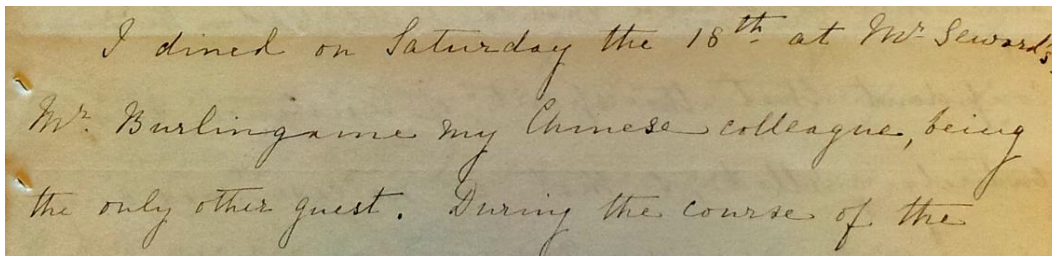 I dined on Saturday the 18th at Mr Seward's.
Mr. Burlingame my Chinese colleague, being
the only other guest. During the course of the